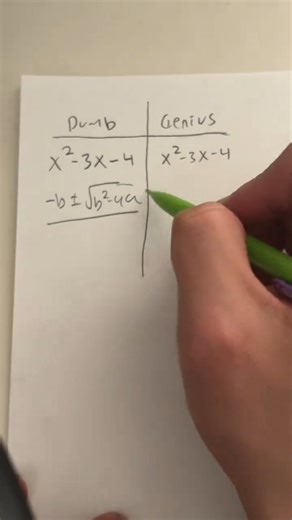 Dumb
Genius
x²-3x-4
x²-3x-4
-b±√b²-4a